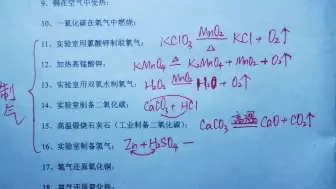 9、铜在空气中受热:
10、一氧化碳在氧气中燃烧:
11、实验室用氯酸钾制取氧气: KClO₃ MnO₂ △ KCl + O₂↑
12、加热高锰酸钾: KMnO₄ △ K₂MnO₄ + MnO₂ + O₂↑
13、实验室用双氧水制氧气: H₂O₂ MnO₂ H₂O + O₂↑
14、实验室制备二氧化碳: CaCO₃ + HCl
15、高温煅烧石灰石(工业制备二氧化碳): CaCO₃ 高温 CaO + CO₂↑
16、实验室制备氢气: Zn + H₂SO₄ —
17、氢气还原氧化铜:
18、氢气还原氧化铁:
制气